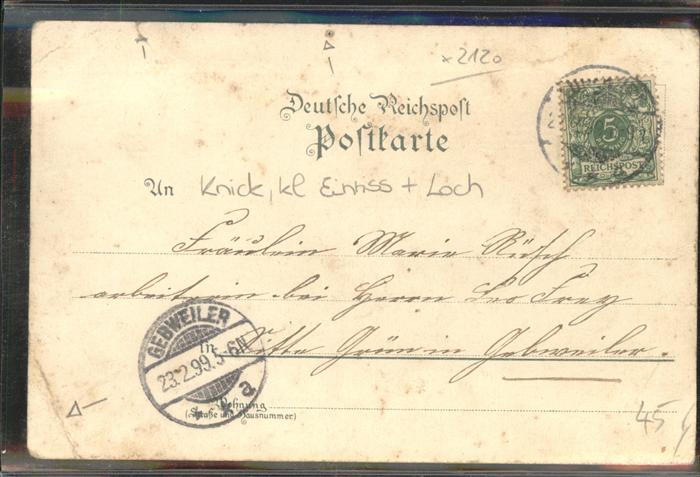 x2120
Deutsche Reichspost
Postkarte
5
REICHSPOST
An Knick, kl Einriss + Loch
Fräulein Marie Rüsch
arbeiterin bei Herrn Leo Frey
in
Gebweiler.
GEBWEILER
23.2.99.5-6N
Wohnung
(Straße und Hausnummer)
45